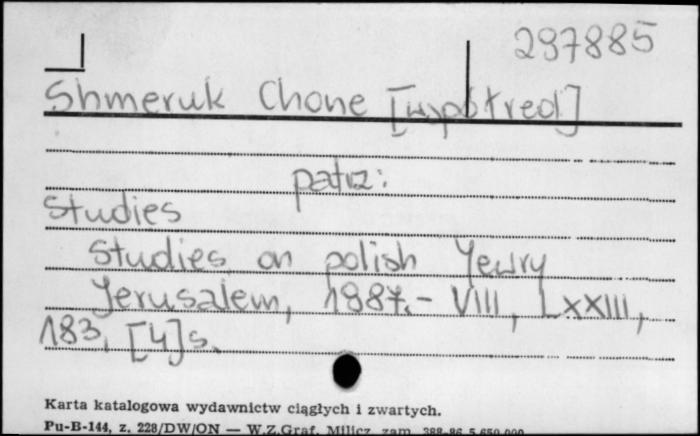 297885
Shmeruk Chone [współred]
patrz:
Studies
Studies on polish Yewry
Jerusalem, 1987.- VIII, LXXIII,
183, [4]s.
Karta katalogowa wydawnictw ciągłych i zwartych.
Pu-B-144, z. 228/DW/ON — W.Z.Graf. Milicz zam. 388-86 5.650.000